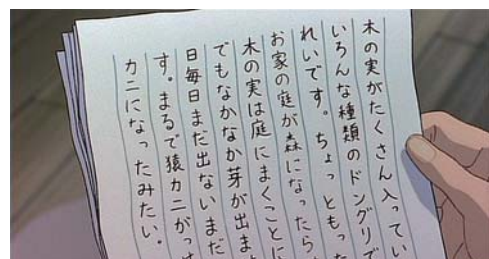 木の実がたくさん入ってい
いろんな種類のドングリで
れいです。ちょっともった
お家の庭が森になったら
木の実は庭にまくことに
でもなかなか芽が出ま
日毎日まだ出ないまだ
す。まるで猿カニがっ
カニになったみたい。